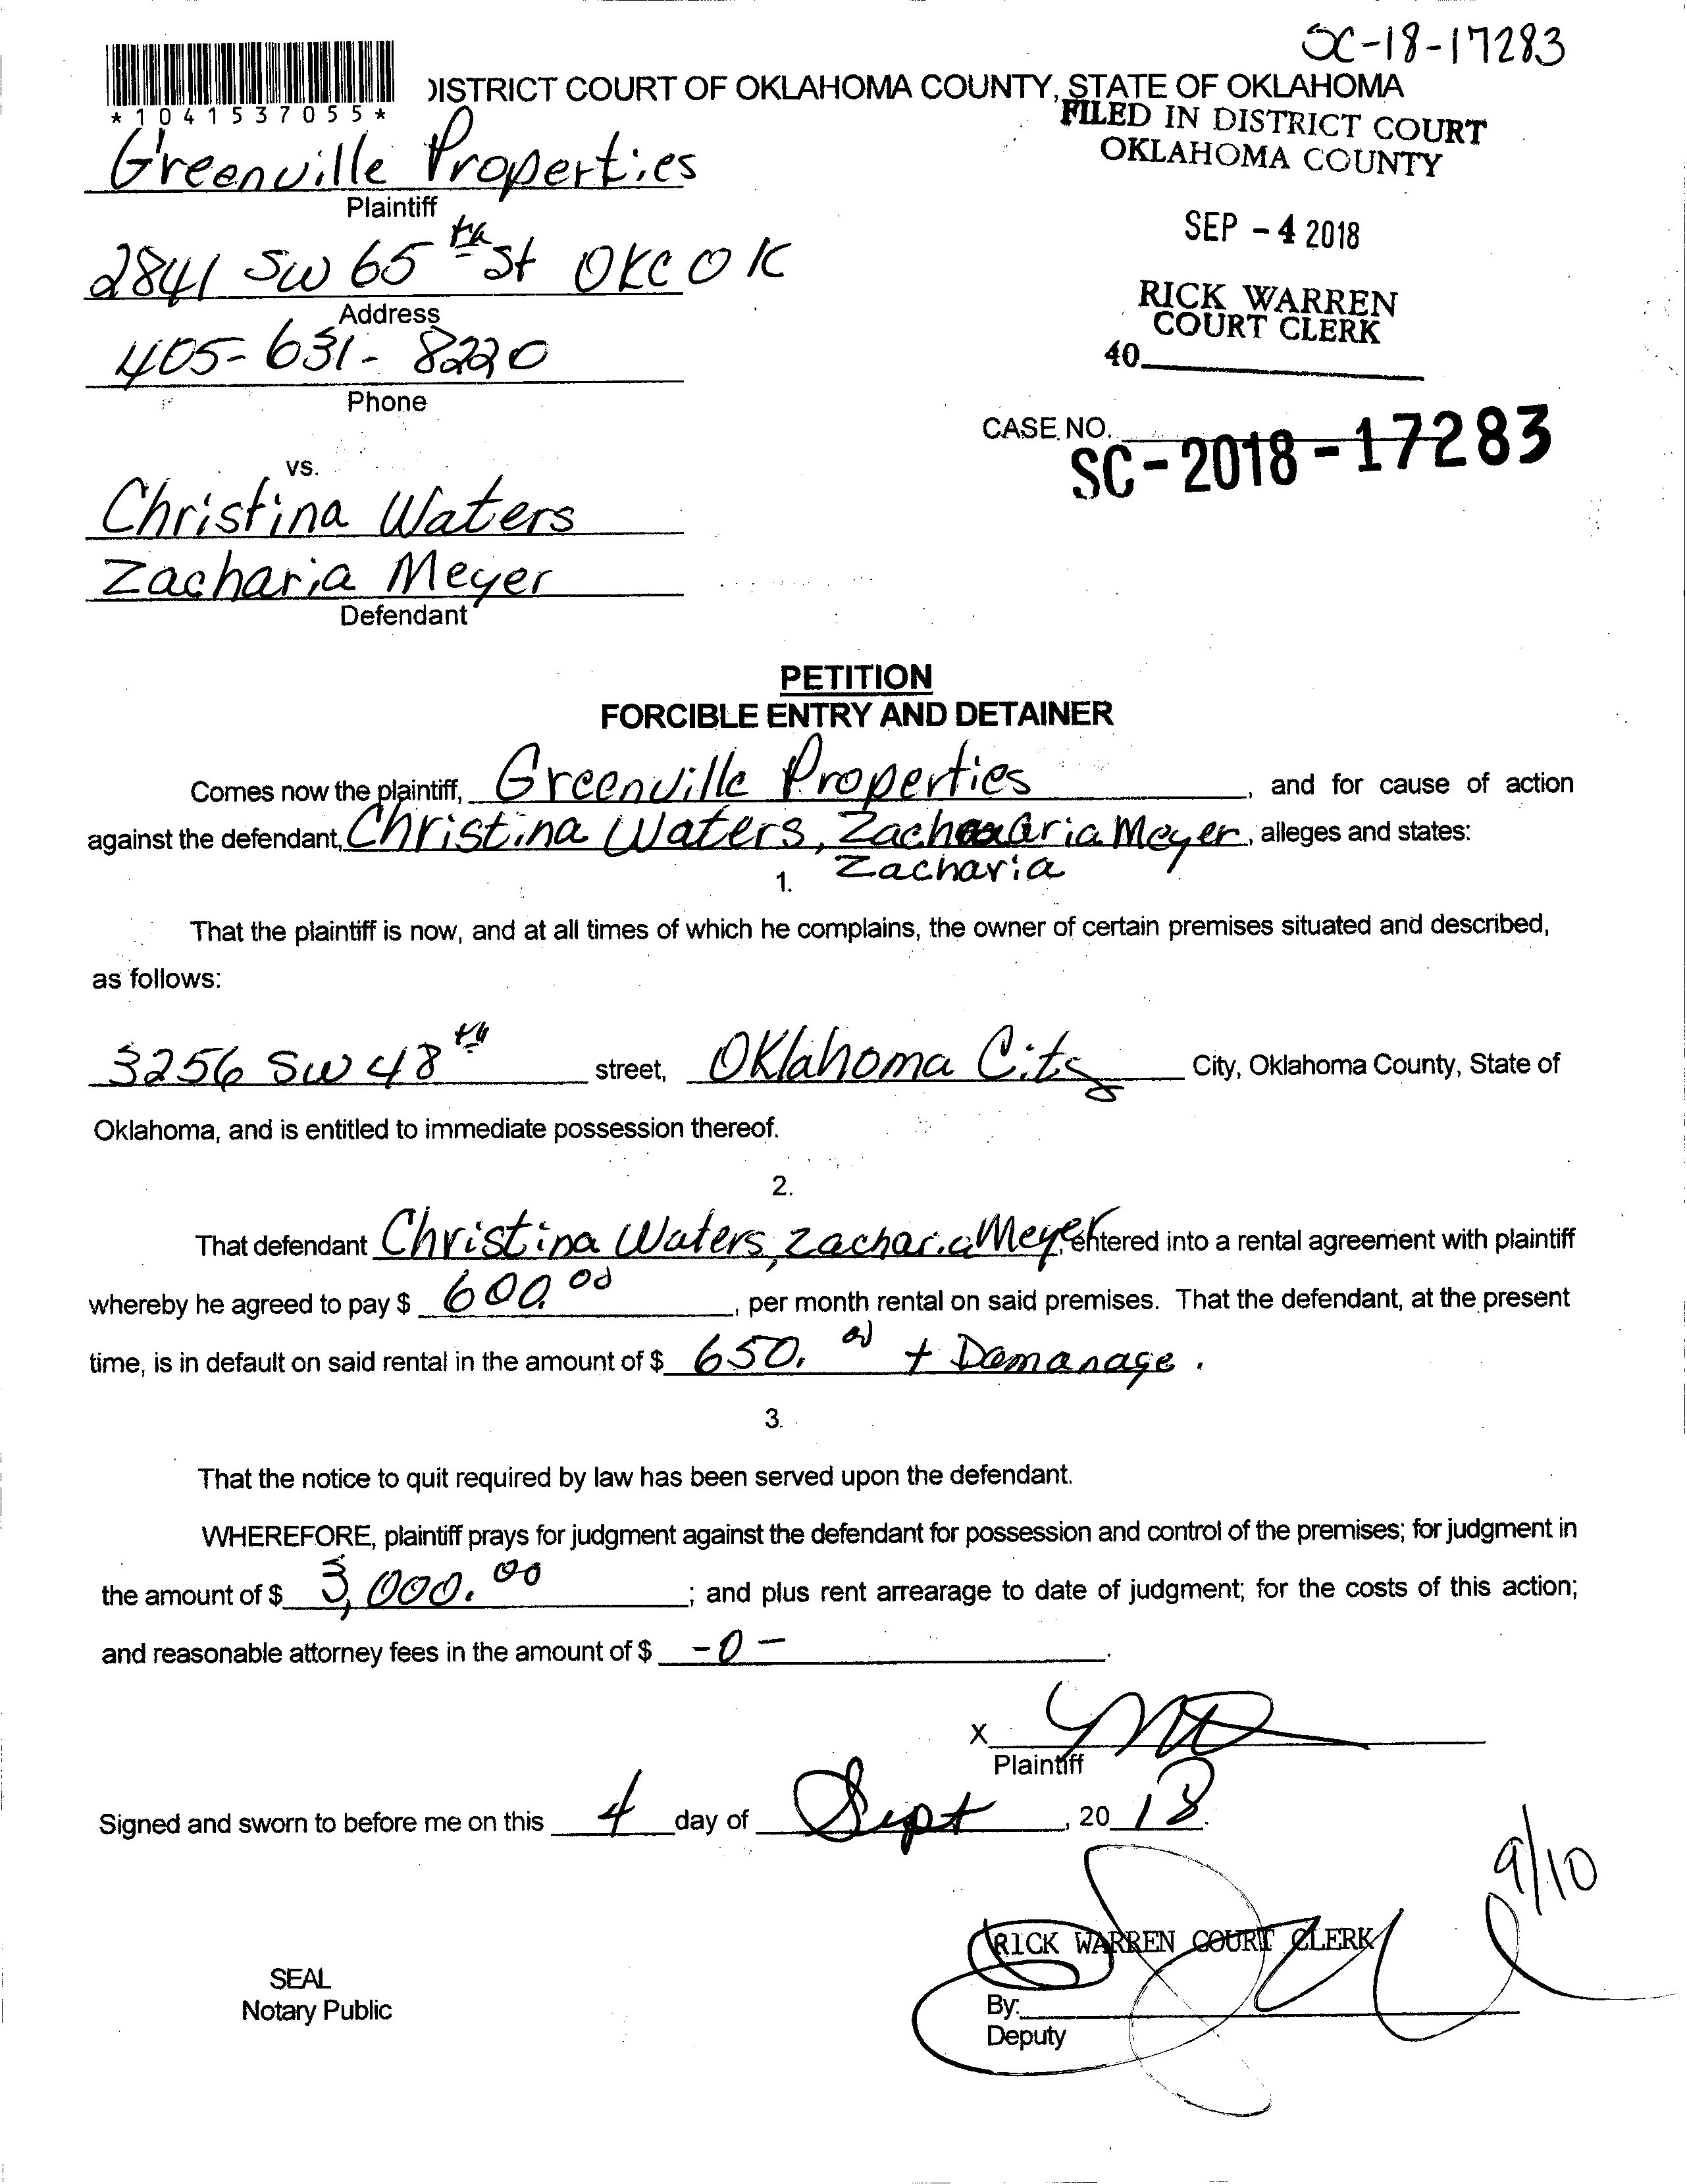 SC-18-17283
*1041537055*
DISTRICT COURT OF OKLAHOMA COUNTY, STATE OF OKLAHOMA
FILED IN DISTRICT COURT
OKLAHOMA COUNTY
Greenville Properties
Plaintiff
SEP - 4 2018
2841 SW 65th St OKC OK
Address
RICK WARREN
COURT CLERK
405-631-8220
40
Phone
CASE NO.
SC-2018-17283
vs.
Christina Waters
Zacharia Meyer
Defendant
PETITION
FORCIBLE ENTRY AND DETAINER
Comes now the plaintiff, Greenville Properties, and for cause of action
against the defendant, Christina Waters, Zacharia Meyer, alleges and states:
Zacharia
1.
That the plaintiff is now, and at all times of which he complains, the owner of certain premises situated and described,
as follows:
3256 SW 48th street, Oklahoma City City, Oklahoma County, State of
Oklahoma, and is entitled to immediate possession thereof.
2.
That defendant Christina Waters, Zacharia Meyer, entered into a rental agreement with plaintiff
whereby he agreed to pay $ 600.00, per month rental on said premises. That the defendant, at the present
time, is in default on said rental in the amount of $ 650.00 + Damanage.
3.
That the notice to quit required by law has been served upon the defendant.
WHEREFORE, plaintiff prays for judgment against the defendant for possession and control of the premises; for judgment in
the amount of $ 3,000.00; and plus rent arrearage to date of judgment; for the costs of this action;
and reasonable attorney fees in the amount of $ -0-.
X
Plaintiff
Signed and sworn to before me on this 4 day of Sept, 2018.
9/10
RICK WARREN COURT CLERK
SEAL
Notary Public
By:
Deputy